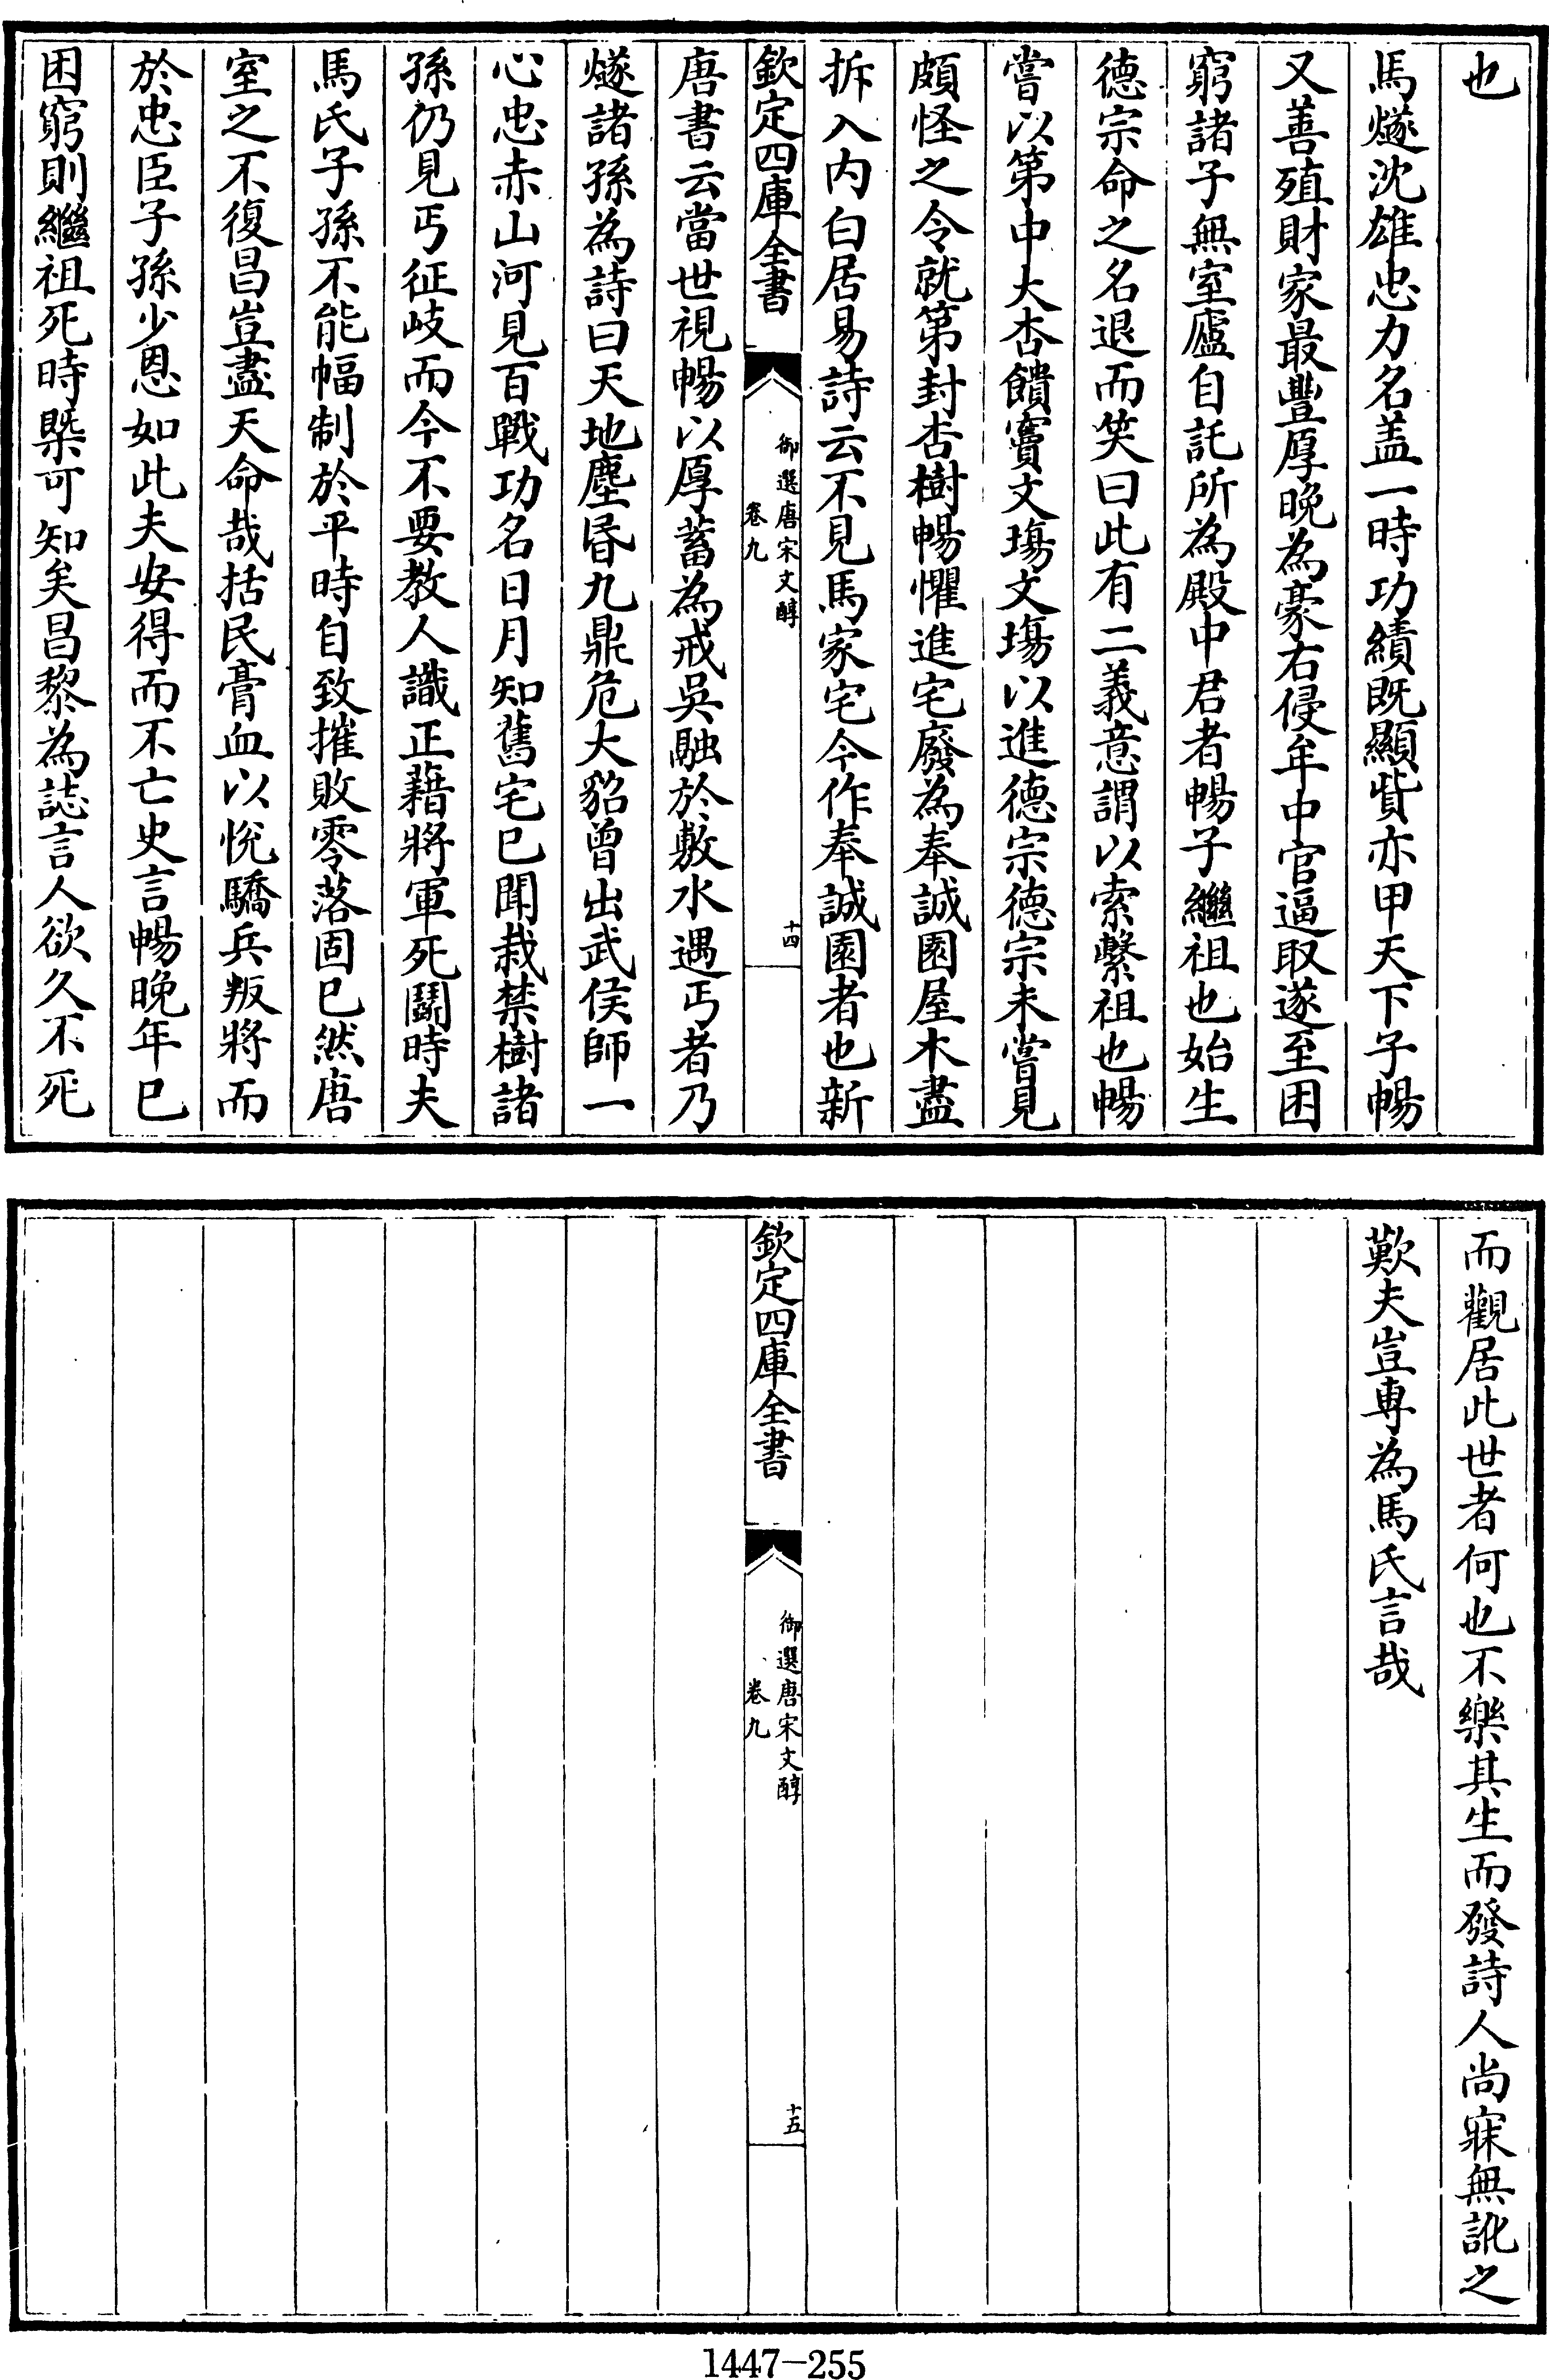 也
馬燧沈雄忠力名盖一時功績既顯貲亦甲天下子暢
又善殖財家最豐厚晚為豪右侵牟中官逼取遂至困
窮諸子無室廬自託所為殿中君者暢子繼祖也始生
德宗命之名退而笑曰此有二義意謂以索繫祖也暢
嘗以第中大杏饋竇文塲文塲以進德宗德宗未嘗見
頗怪之令就第封杏樹暢懼進宅廢為奉誠園屋木盡
拆入内白居易詩云不見馬家宅今作奉誠園者也新
欽定四庫全書
御選唐宋文醇
卷九
十四
唐書云當世視暢以厚蓄為戒吳融於敷水遇丐者乃
燧諸孫為詩曰天地塵昏九鼎危大貂曾出武侯師一
心忠赤山河見百戰功名日月知舊宅已聞栽禁樹諸
孫仍見丐征岐而今不要教人識正藉將軍死鬭時夫
馬氏子孫不能幅制於平時自致摧敗零落固已然唐
室之不復昌豈盡天命哉括民膏血以悦驕兵叛將而
於忠臣子孫少恩如此夫安得而不亡史言暢晚年已
困窮則繼祖死時槩可知矣昌黎為誌言人欲久不死
而觀居此世者何也不樂其生而發詩人尚寐無訛之
歎夫豈専為馬氏言哉
欽定四庫全書
御選唐宋文醇
卷九
十五
1447-255